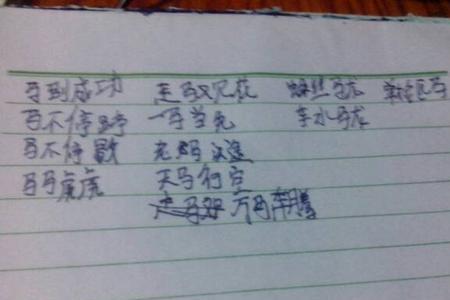 马到成功 走马观花 蛛丝马迹 塞翁失马
马不停蹄 一马当先 车水马龙
马不停歇 老马识途
马马虎虎 天马行空
万马奔腾